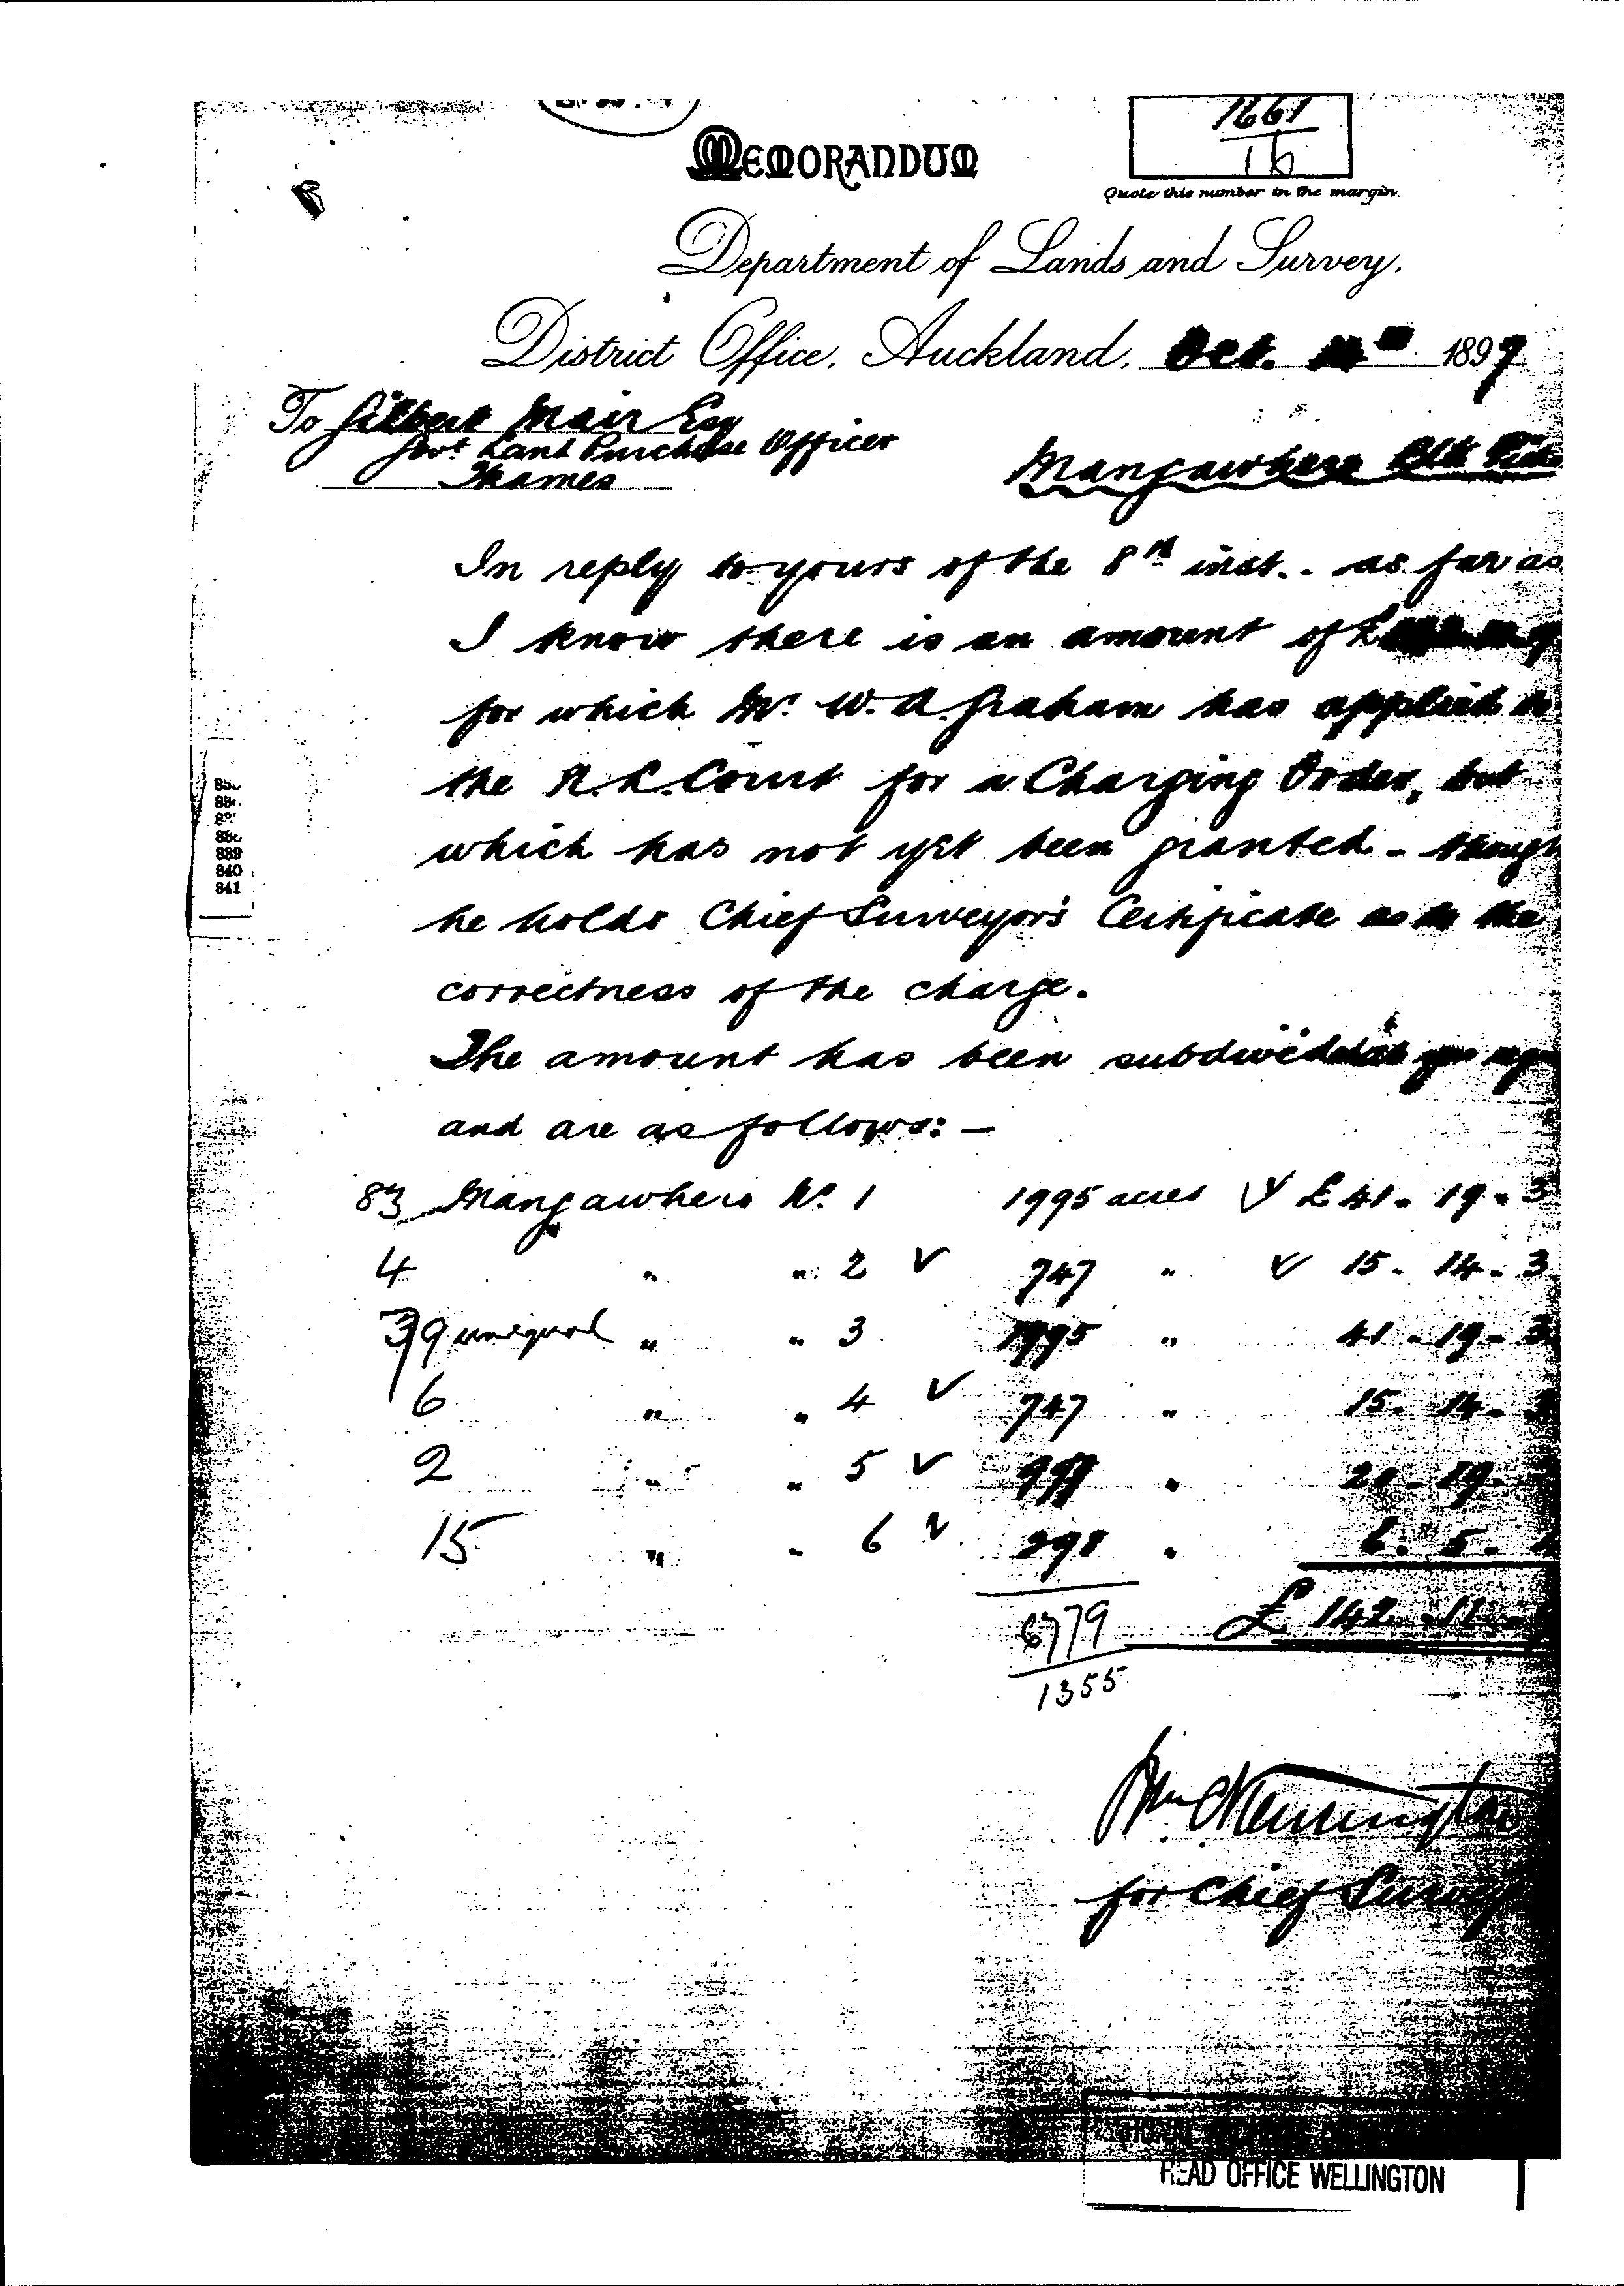 1661
16
MEMORANDUM
Quote this number in the margin.
Department of Lands and Survey.
District Office, Auckland, Oct. 1897
To Gilbert Mair Esq
Govt Land Purchase Officer
Thames
Mangawhero Blk
In reply to yours of the 8th inst.. as far as
I know there is an amount of £
for which Mr. W. A. Graham has applied to
the N.L. Court for a Charging Order, but
which has not yet been granted - though
he holds Chief Surveyor's Certificate as to the
correctness of the charge.
The amount has been subdivided
and are as follows: -
839
840
841
83 Mangawhero No. 1 1995 acres £ 41 - 19 - 3
4 " " 2 747 " 15 - 14 - 3
39 unequal " " 3 1995 " 41 - 19 - 3
6 " " 4 747 " 15 - 14 -
2 " " 5 997 " 20 - 19 -
15 " " 6 298 " 6 - 5 -
6779 £ 142 - 11 -
1355
for Chief Survey
HEAD OFFICE WELLINGTON